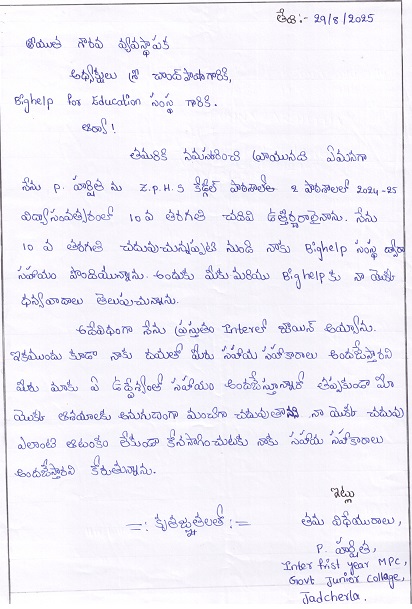 తేది:- 29/8/2025
శ్రీయుత గౌరవ వ్యవస్థాపక
అధ్యక్షులు శ్రీ చాంద్ పాషాగారికి,
Bighelp for Education సంస్థ గారికి.
ఆర్యా!
తమరికి నమస్కరించి వ్రాయునది ఏమనగా
నేను P. హర్షిత ను Z.P.H.S పాఠశాలలో 2024-25
విద్యాసంవత్సరంలో 10వ తరగతి చదివి ఉత్తీర్ణురాలైనాను. నేను
10 వ తరగతి చదువుచున్నప్పటి నుండి నాకు Bighelp సంస్థ ద్వారా
సహాయం పొందియున్నాను. అందుకు మీకు మరియు Bighelp కు నా యొక్క
ధన్యవాదాలు తెలుపుచున్నాను.
అదేవిధంగా నేను ప్రస్తుతం Interలో జాయిన్ అయ్యాను.
ఇకముందు కూడా నాకు దయతో మీరు సహాయ సహకారాలు అందజేస్తారని
మీరు మాకు ఏ ఉద్దేశ్యంతో సహాయం అందజేస్తూన్నారో తప్పకుండా మీ
యొక్క ఆశయాలకు అనుగుణంగా మంచిగా చదువుతాను నా యొక్క చదువు
ఎలాంటి ఆటంకం లేకుండా కొనసాగించుటకు నాకు సహాయ సహకారాలు
అందజేస్తారని కోరుతున్నాను.
ఇట్లు
=: కృతజ్ఞతలతో :=
తమ విధేయురాలు,
P. హర్షిత,
Inter frist year MPC,
Govt Junior College,
Jadcherla.